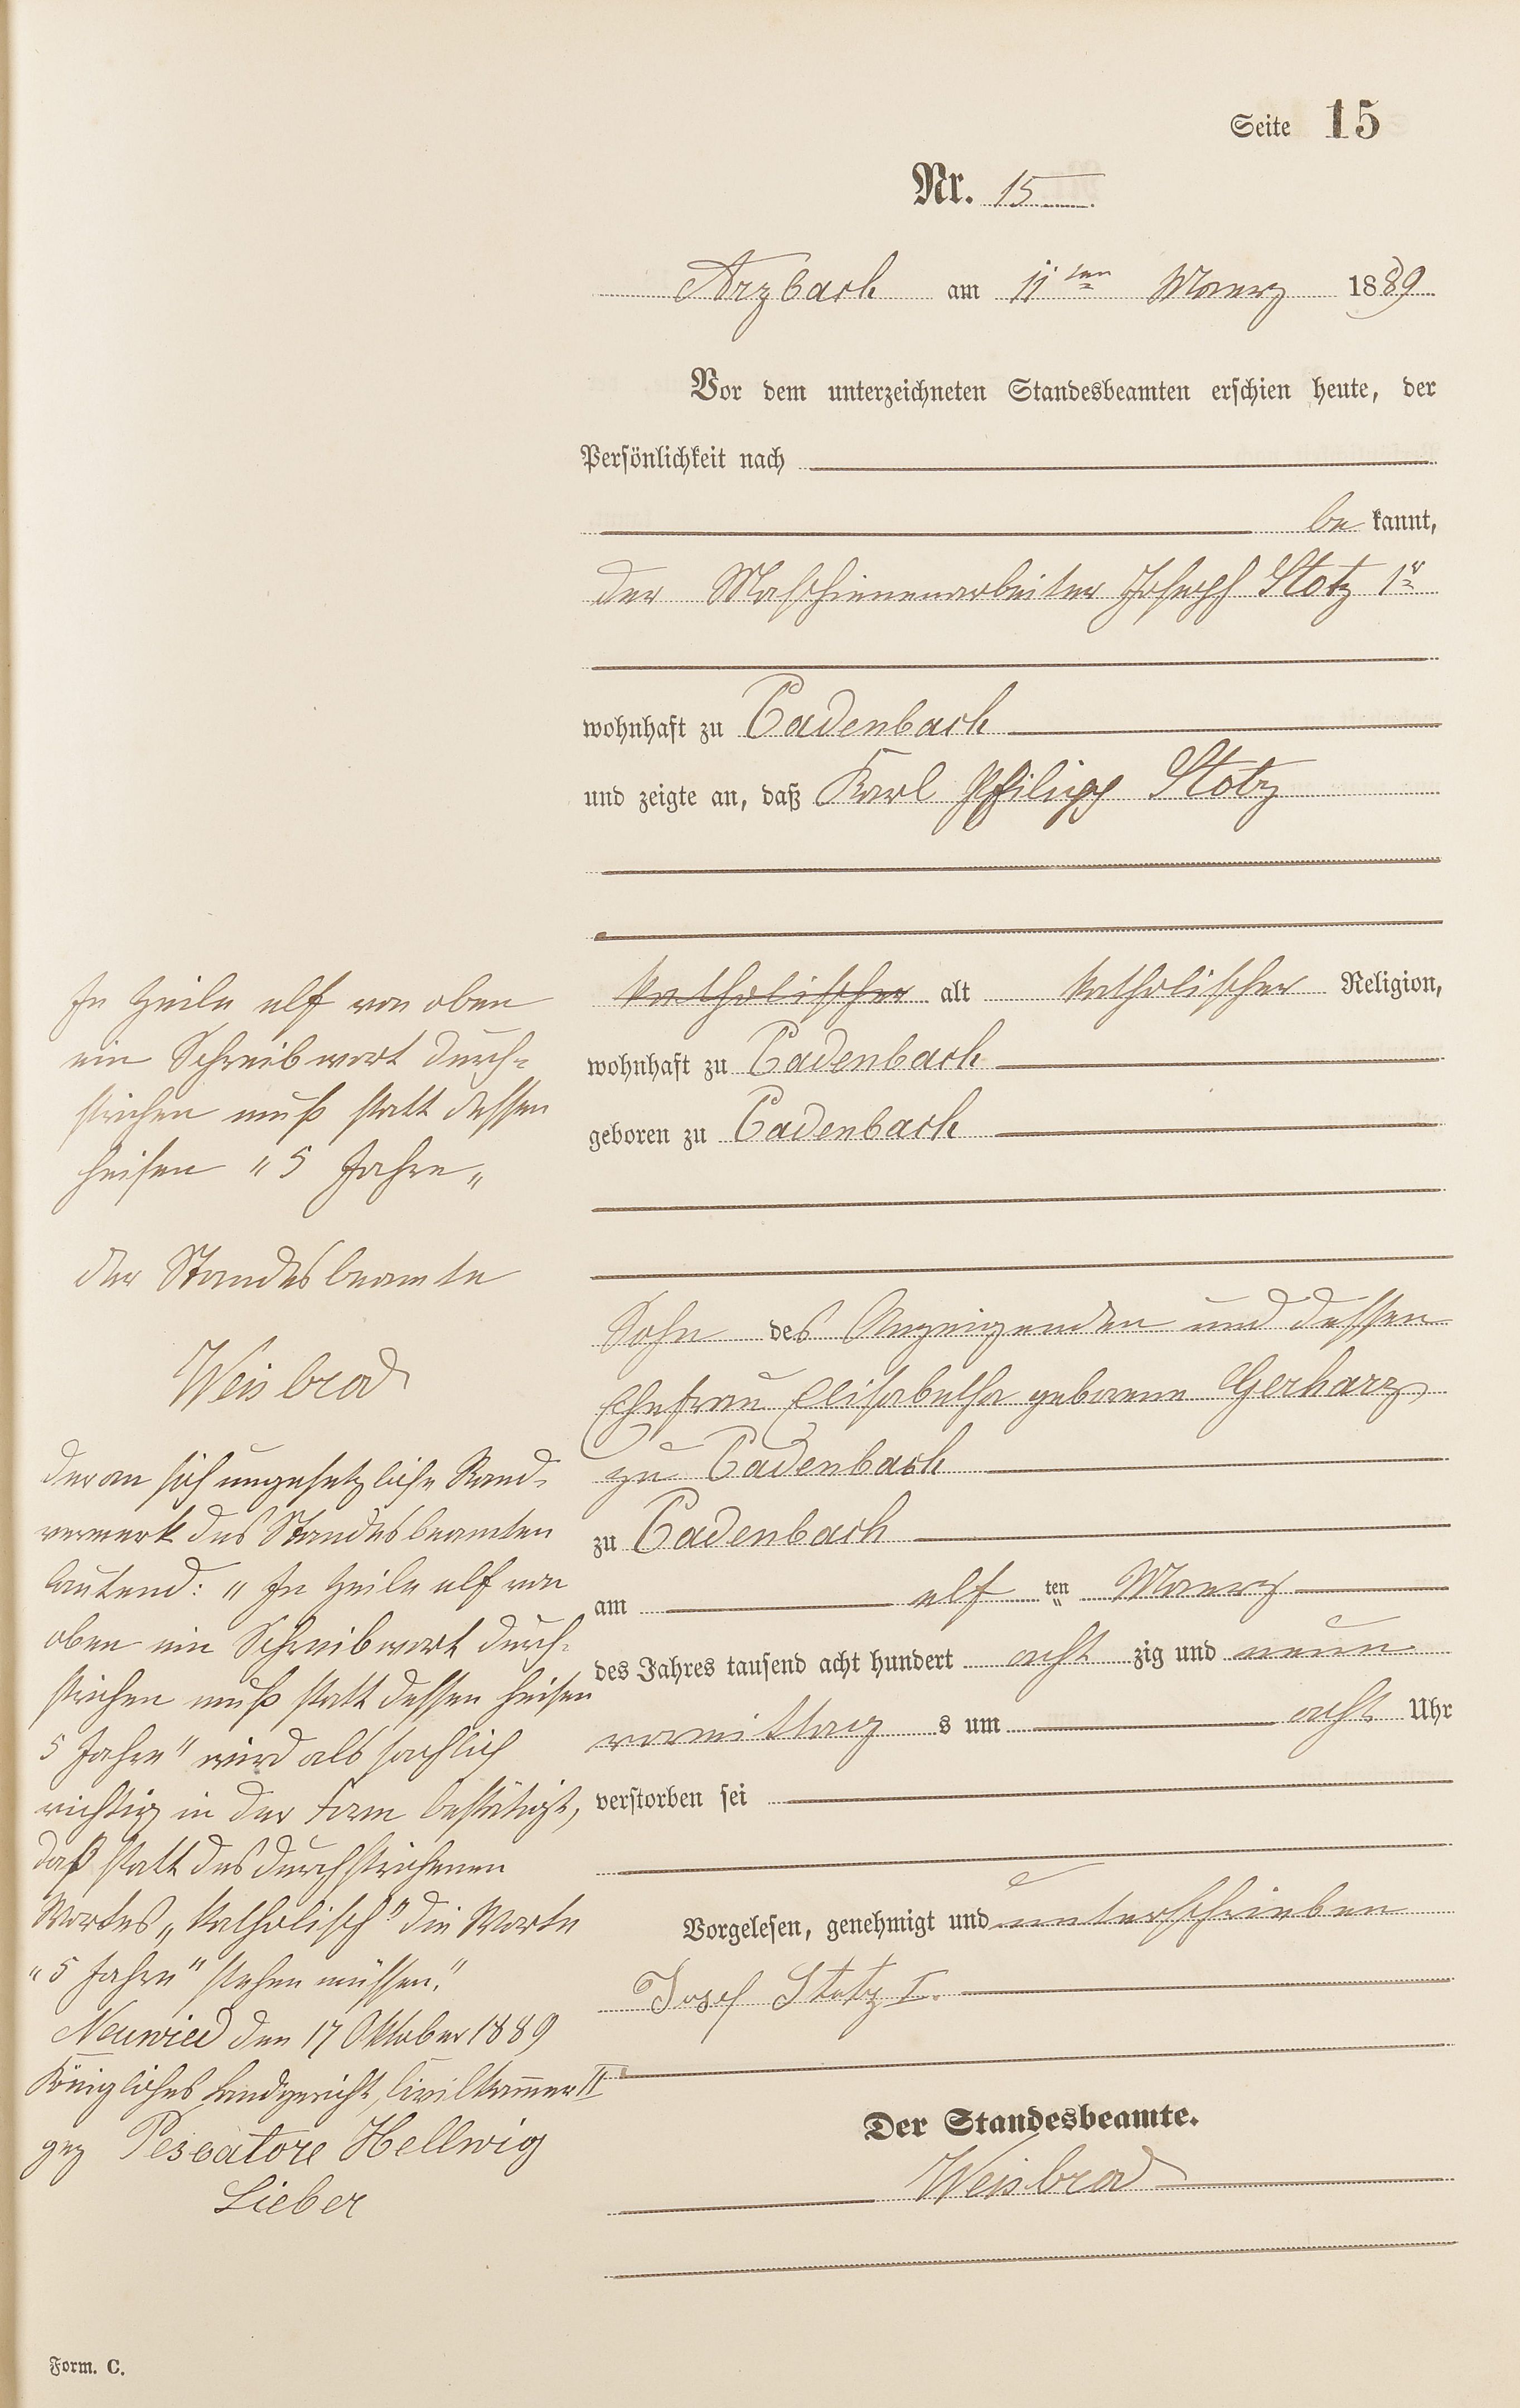 Seite 15
Nr. 15
Arzbach am 11ten Maerz 1889
Vor dem unterzeichneten Standesbeamten erschien heute, der
Persönlichkeit nach
be kannt,
der Maschienenarbeiter Joseph Stotz 1r
wohnhaft zu Cadenbach
und zeigte an, daß Karl Philipp Stotz
katholischer alt katholischer Religion,
wohnhaft zu Cadenbach
geboren zu Cadenbach
Sohn des Anzeigenden und dessen
Ehefrau Elisabetha geborene Gerharz
zu Cadenbach
zu Cadenbach
am elf ten Maerz
des Jahres tausend acht hundert acht zig und neun
vormittag s um acht Uhr
verstorben sei
Vorgelesen, genehmigt und unterschrieben
Josef Stotz I.
Der Standesbeamte.
Weisbrod
In Zeile elf von oben
ein Schreibwort durch-
strichen muß statt dessen
heisen "5 Jahre"
der Standesbeamte
Weisbrod
Der an sich ungesetzliche Rand-
vermerk des Standesbeamten
lautend: "In Zeile elf von
oben ein Schreibwort durch-
strichen muß statt dessen heisen
5 Jahre" wird als sachlich
richtig in der Form bestätigt,
daß statt des durchstrichenen
Wortes "katholisch" die Worte
"5 Jahre" stehen müssen."
Neuwied den 17 Oktober 1889
Königliches Landgericht, Civilkammer II
gez Pescatore Hellwig
Lieber
Form. C.